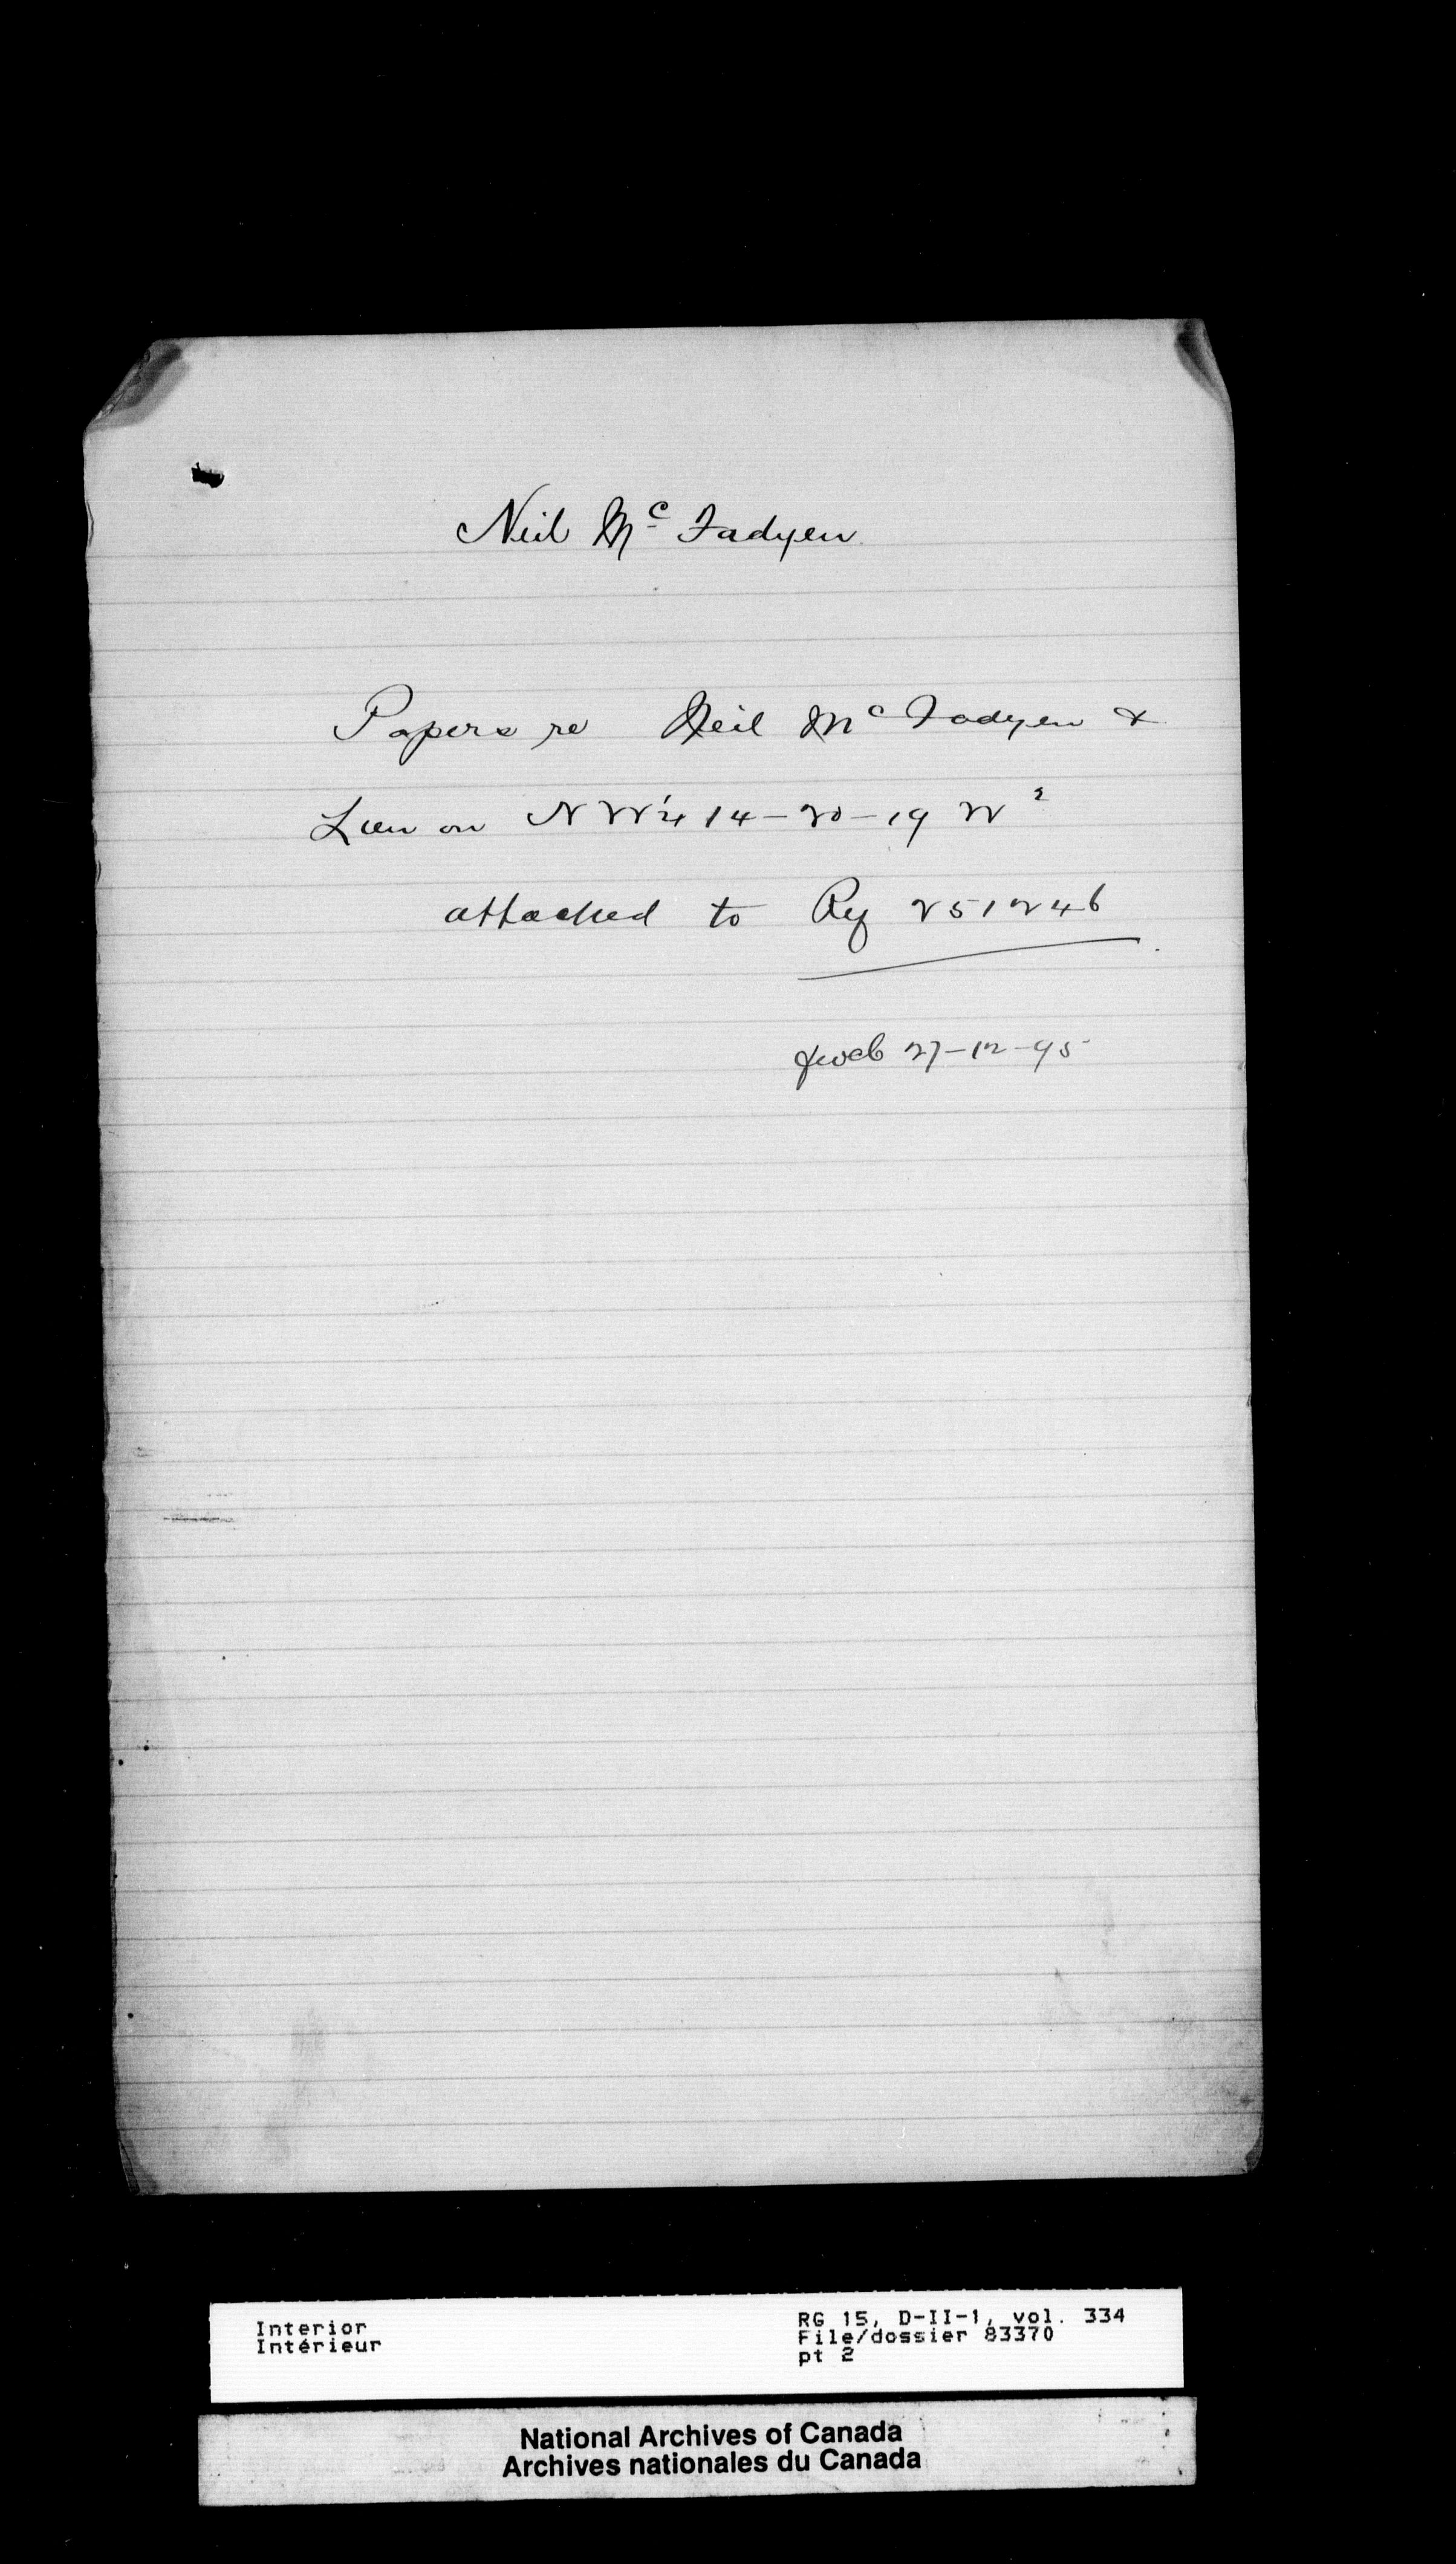 Neil Mc Fadyen
Papers re Neil Mc Fadyen &
Lien on NW¼ 14-20-19 W²
attached to Ref 251246
27-12-95
Interior
Intérieur
RG 15, D-II-1, vol. 334
File/dossier 83370
pt 2
National Archives of Canada
Archives nationales du Canada